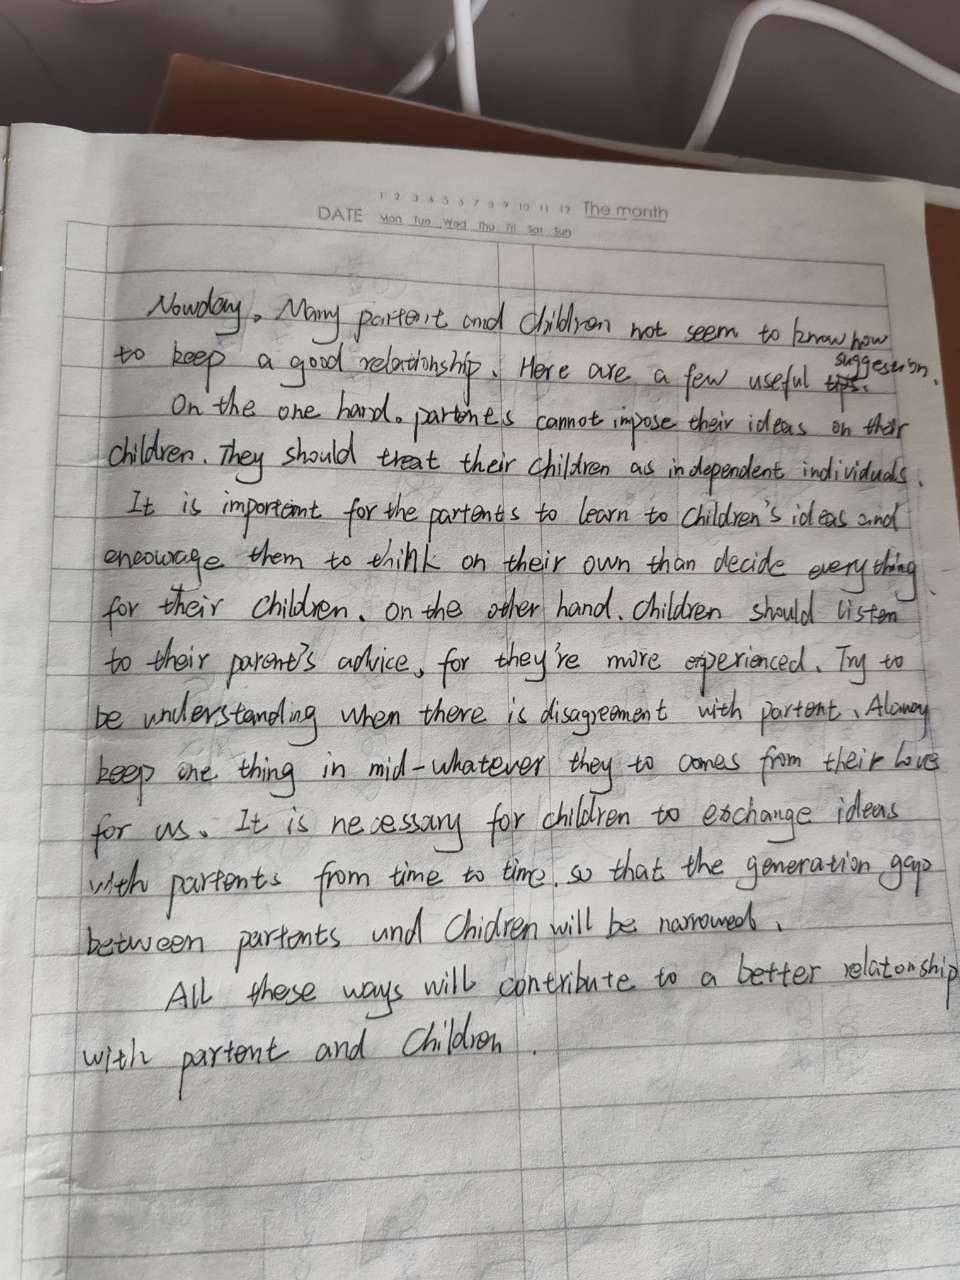 1 2 3 4 5 6 7 8 9 10 11 12 The month
DATE Mon Tue Wed Thu Fri Sat Sun
Nowday, Many partent and children not seem to know how
to keep a good relationship. Here are a few useful suggestion.
On the one hand. partents cannot impose their ideas on their
children. They should treat their children as independent individuals.
It is important for the partents to learn to children's ideas and
encowage them to think on their own than decide everything
for their children. on the other hand. children should listen
to their parent's advice, for they're more experienced. Try to
be understanding when there is disagreement with partent. Alaway
keep one thing in mid-whatever they to comes from their love
for us. It is necessary for children to exchange ideas
with partents from time to time. so that the generation gap
between partents und Chidren will be narrowed.
All these ways will contribute to a better relatonship
with partent and children.